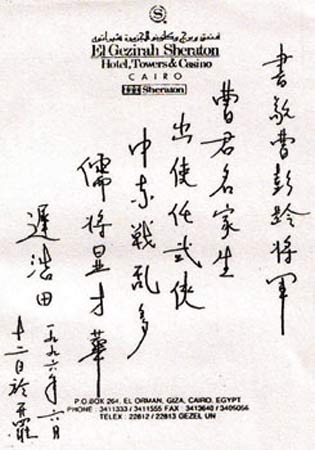 S
فندق وبرج وكازينو الجزيرة شيراتون
El Gezirah Sheraton
Hotel, Towers & Casino
CAIRO
Sheraton
書敬曹彭龄将军
曹君名家生
出使任武侠
中东战乱多
儒将显才華
遲浩田
一九九六年六月
十二日於开羅
P.O.BOX 264, EL ORMAN, GIZA, CAIRO, EGYPT
PHONE : 3411333 / 3411555 FAX : 3413640 / 3405056
TELEX : 22812 / 22813 GEZEL UN